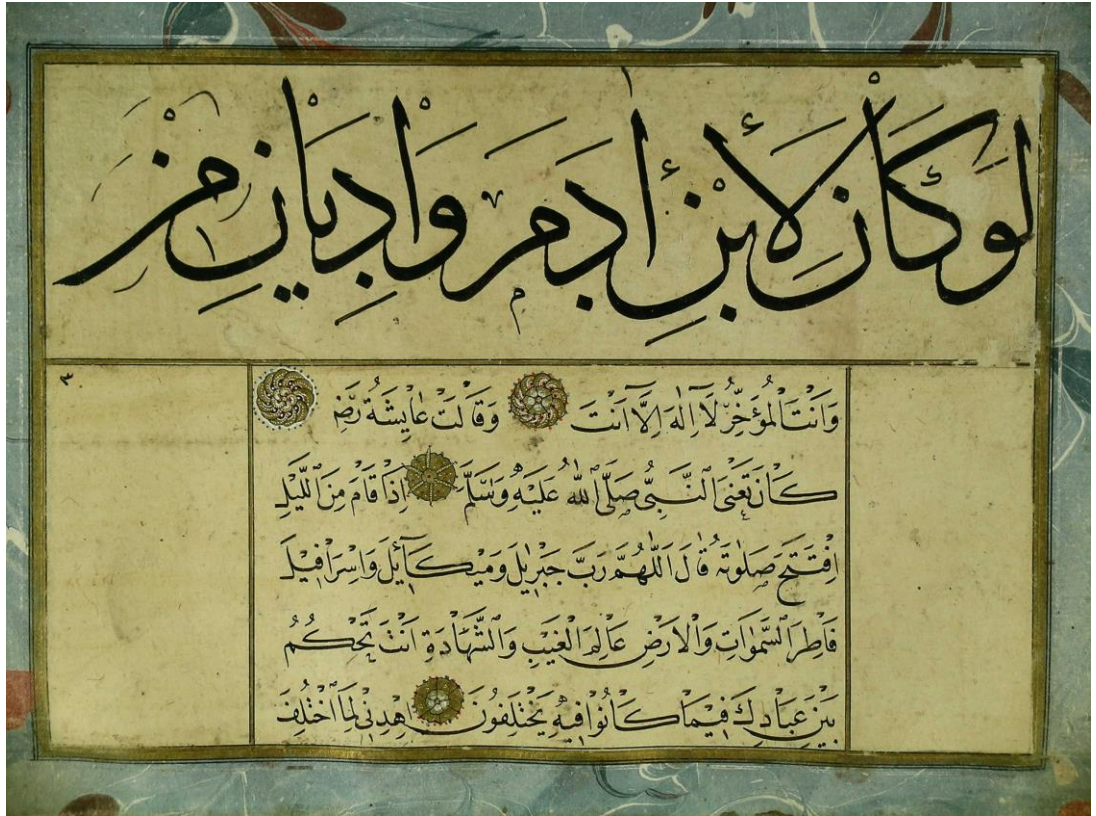 لَوْ كَانَ لِأَبْنِ أٰدَمَ وَادِيَانِ مِنْ
وَاَنْتَ الْمُؤَخِّرُ لَآ اِلٰهَ اِلَّا اَنْتَ وَقَالَتْ عَايِشَةُ رَضِ
كَانَ تَعْنِى النَّبِىَّ صَلَّى اللهُ عَلَيْهِ وَسَلَّمَ اِذَا قَامَ مِنَ الَّيْلِ
اِفْتَتَحَ صَلٰوتَهُ قَالَ اللّٰهُمَّ رَبَّ جَبْرَئِلَ وَمِيكَآئِلَ وَاِسْرَافِيلَ
فَاطِرَ السَّمٰوَاتِ وَالْاَرْضِ عَالِمَ الْغَيْبِ وَالشَّهَادَةِ اَنْتَ تَحْكُمُ
بَيْنَ عِبَادِكَ فِيمَا كَانُوا فِيهِ يَخْتَلِفُونَ اِهْدِنِى لِمَا اخْتُلِفَ
٣٠